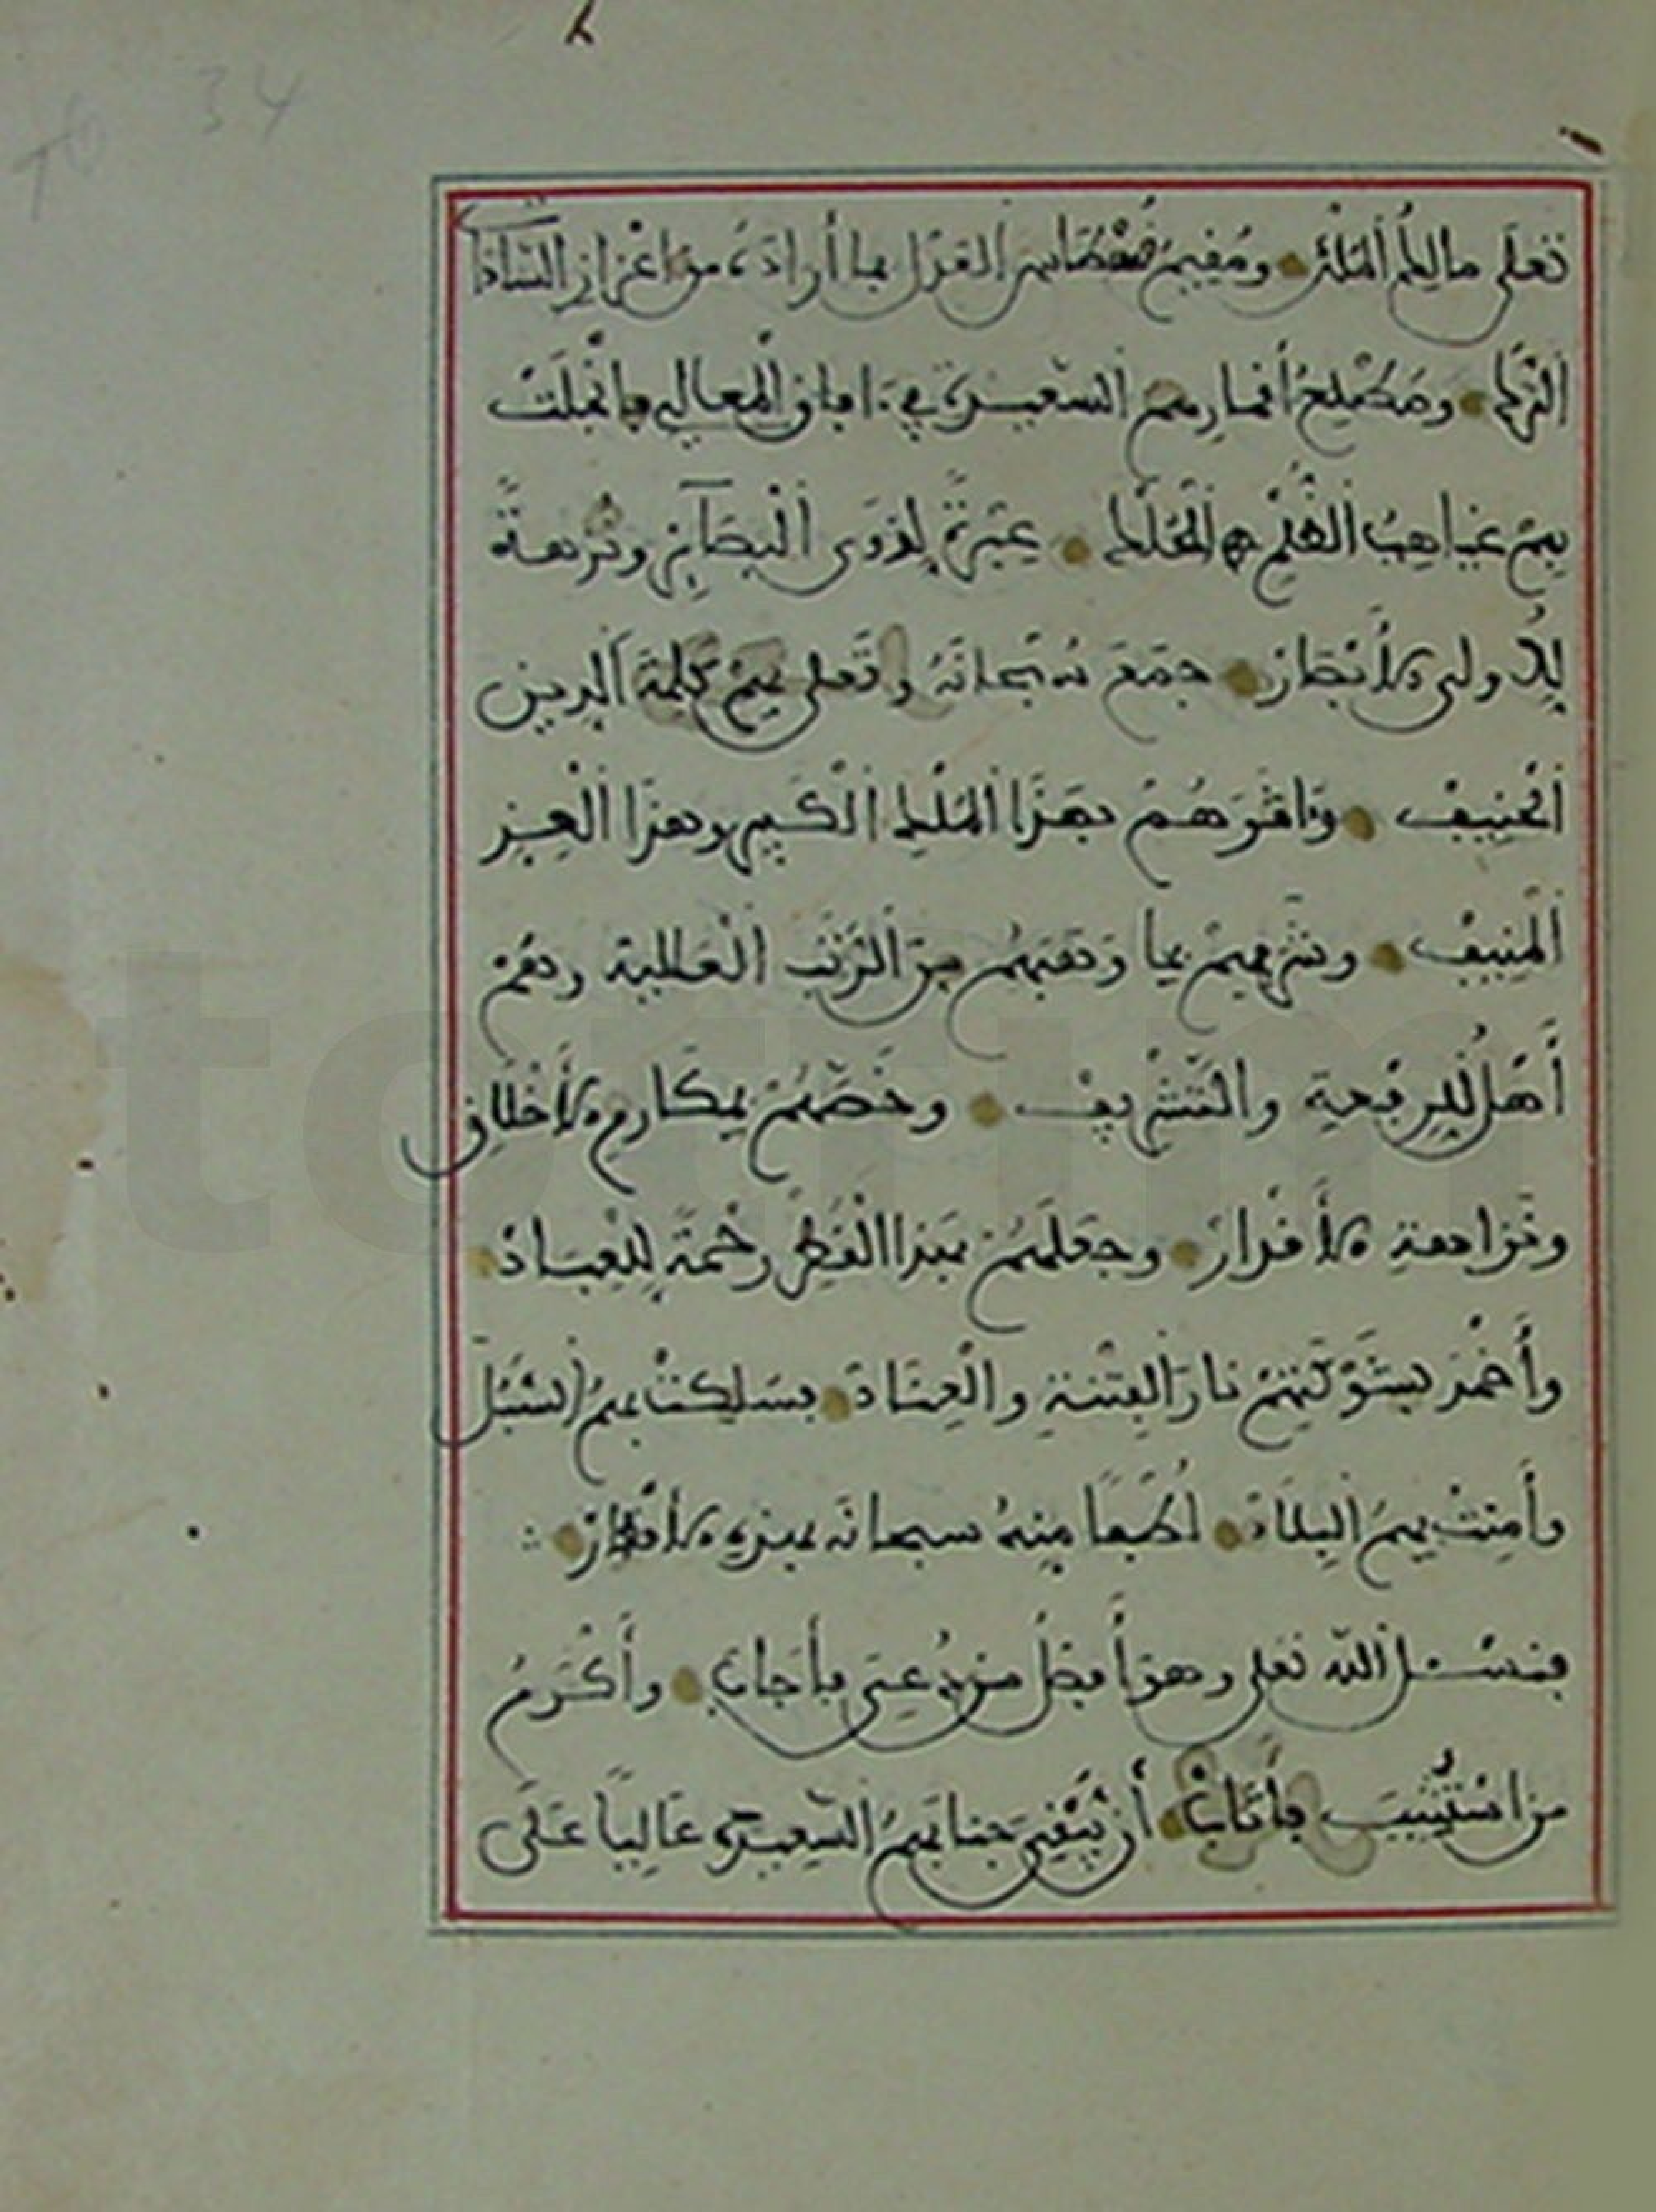 34
تعلى مالك الملك ومقيم قسطاس العدل بما أراده من اعزاز السادات
ومطلع أقمارهم السعيدة في ءافاق المعالي فانجلت
بهم غياهب الظلم والحلك عبرة لذوى البصآئر ونزهة
للاولى الأنظار جمع سبحانه وتعلى بهم كلمة الدين
الحنيف وأقرهم بهذا الملك الكبير وهذا العز
المنيف وشرفهم بما وهبهم من الرتب العالية وهم
أهل للرفعة والتشريف وخصهم بمكارم الأخلاق
ونزاهة الأقدار وجعلهم بهذا القطر رحمة للعباد
وأخمد بشوكتهم نار الفتنة والعناد فسلكت بهم السبل
وأمنت بهم البلاد لطفا منه سبحانه بهذه الأقطار
فنسئل الله تعلى وهو أفضل من دعى فأجاب وأكرم
من استثيب فأثاب أن يبقى جنابهم السعيد عاليا على
torim